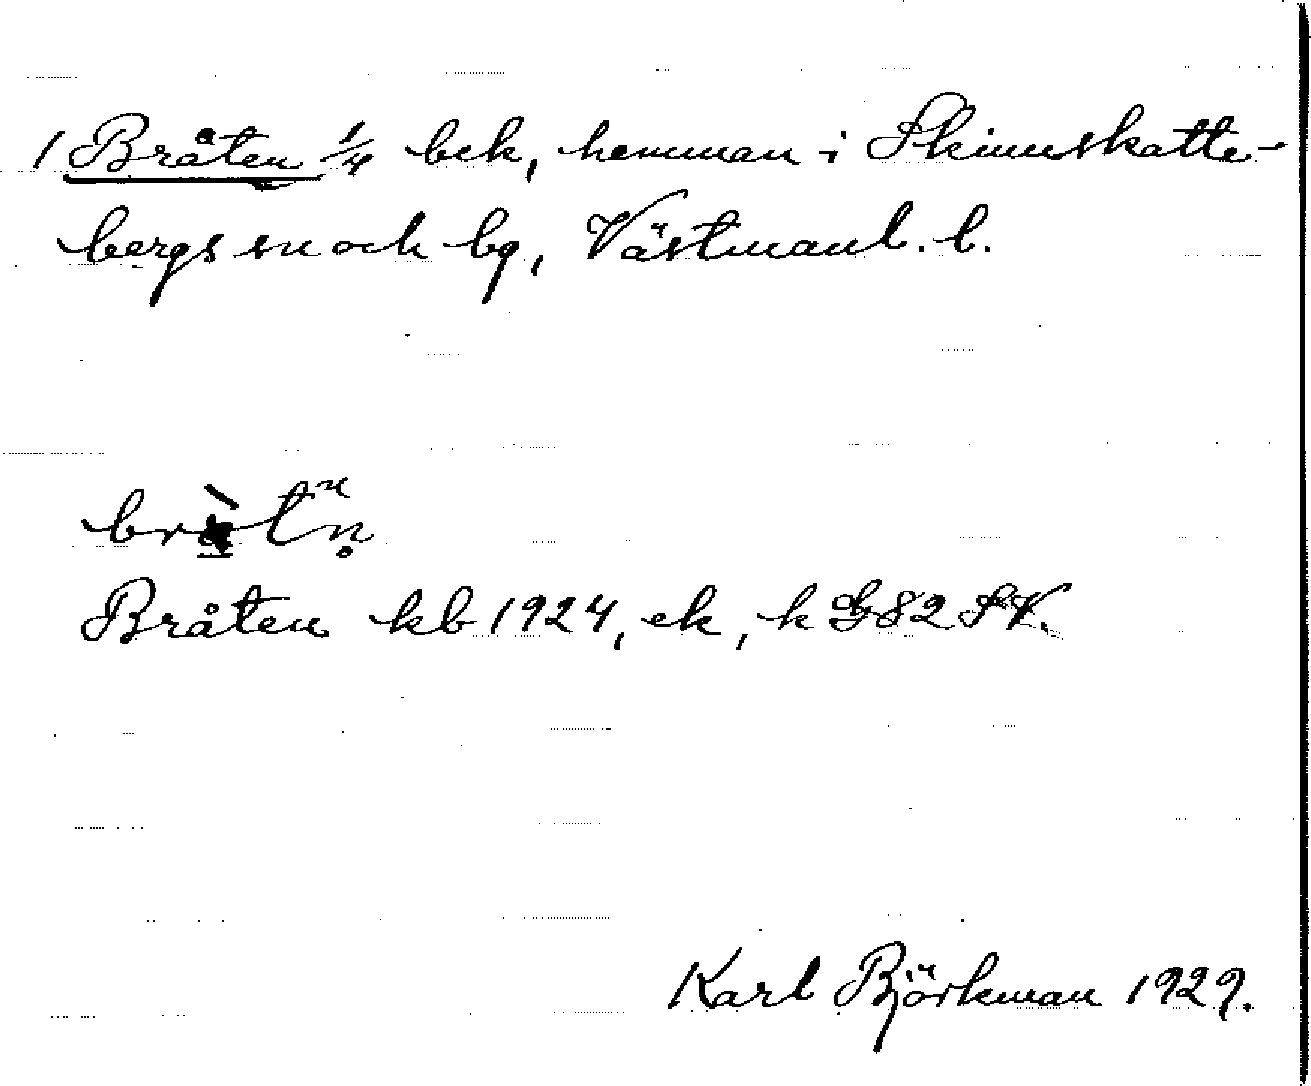 1 Bråten 1/4 bek, hemman i Skinnskatte-
bergs sn och bg, Västmanl. l.
Bråten kb 1924, ek, k G82 SV.
Karl Björkman 1929.